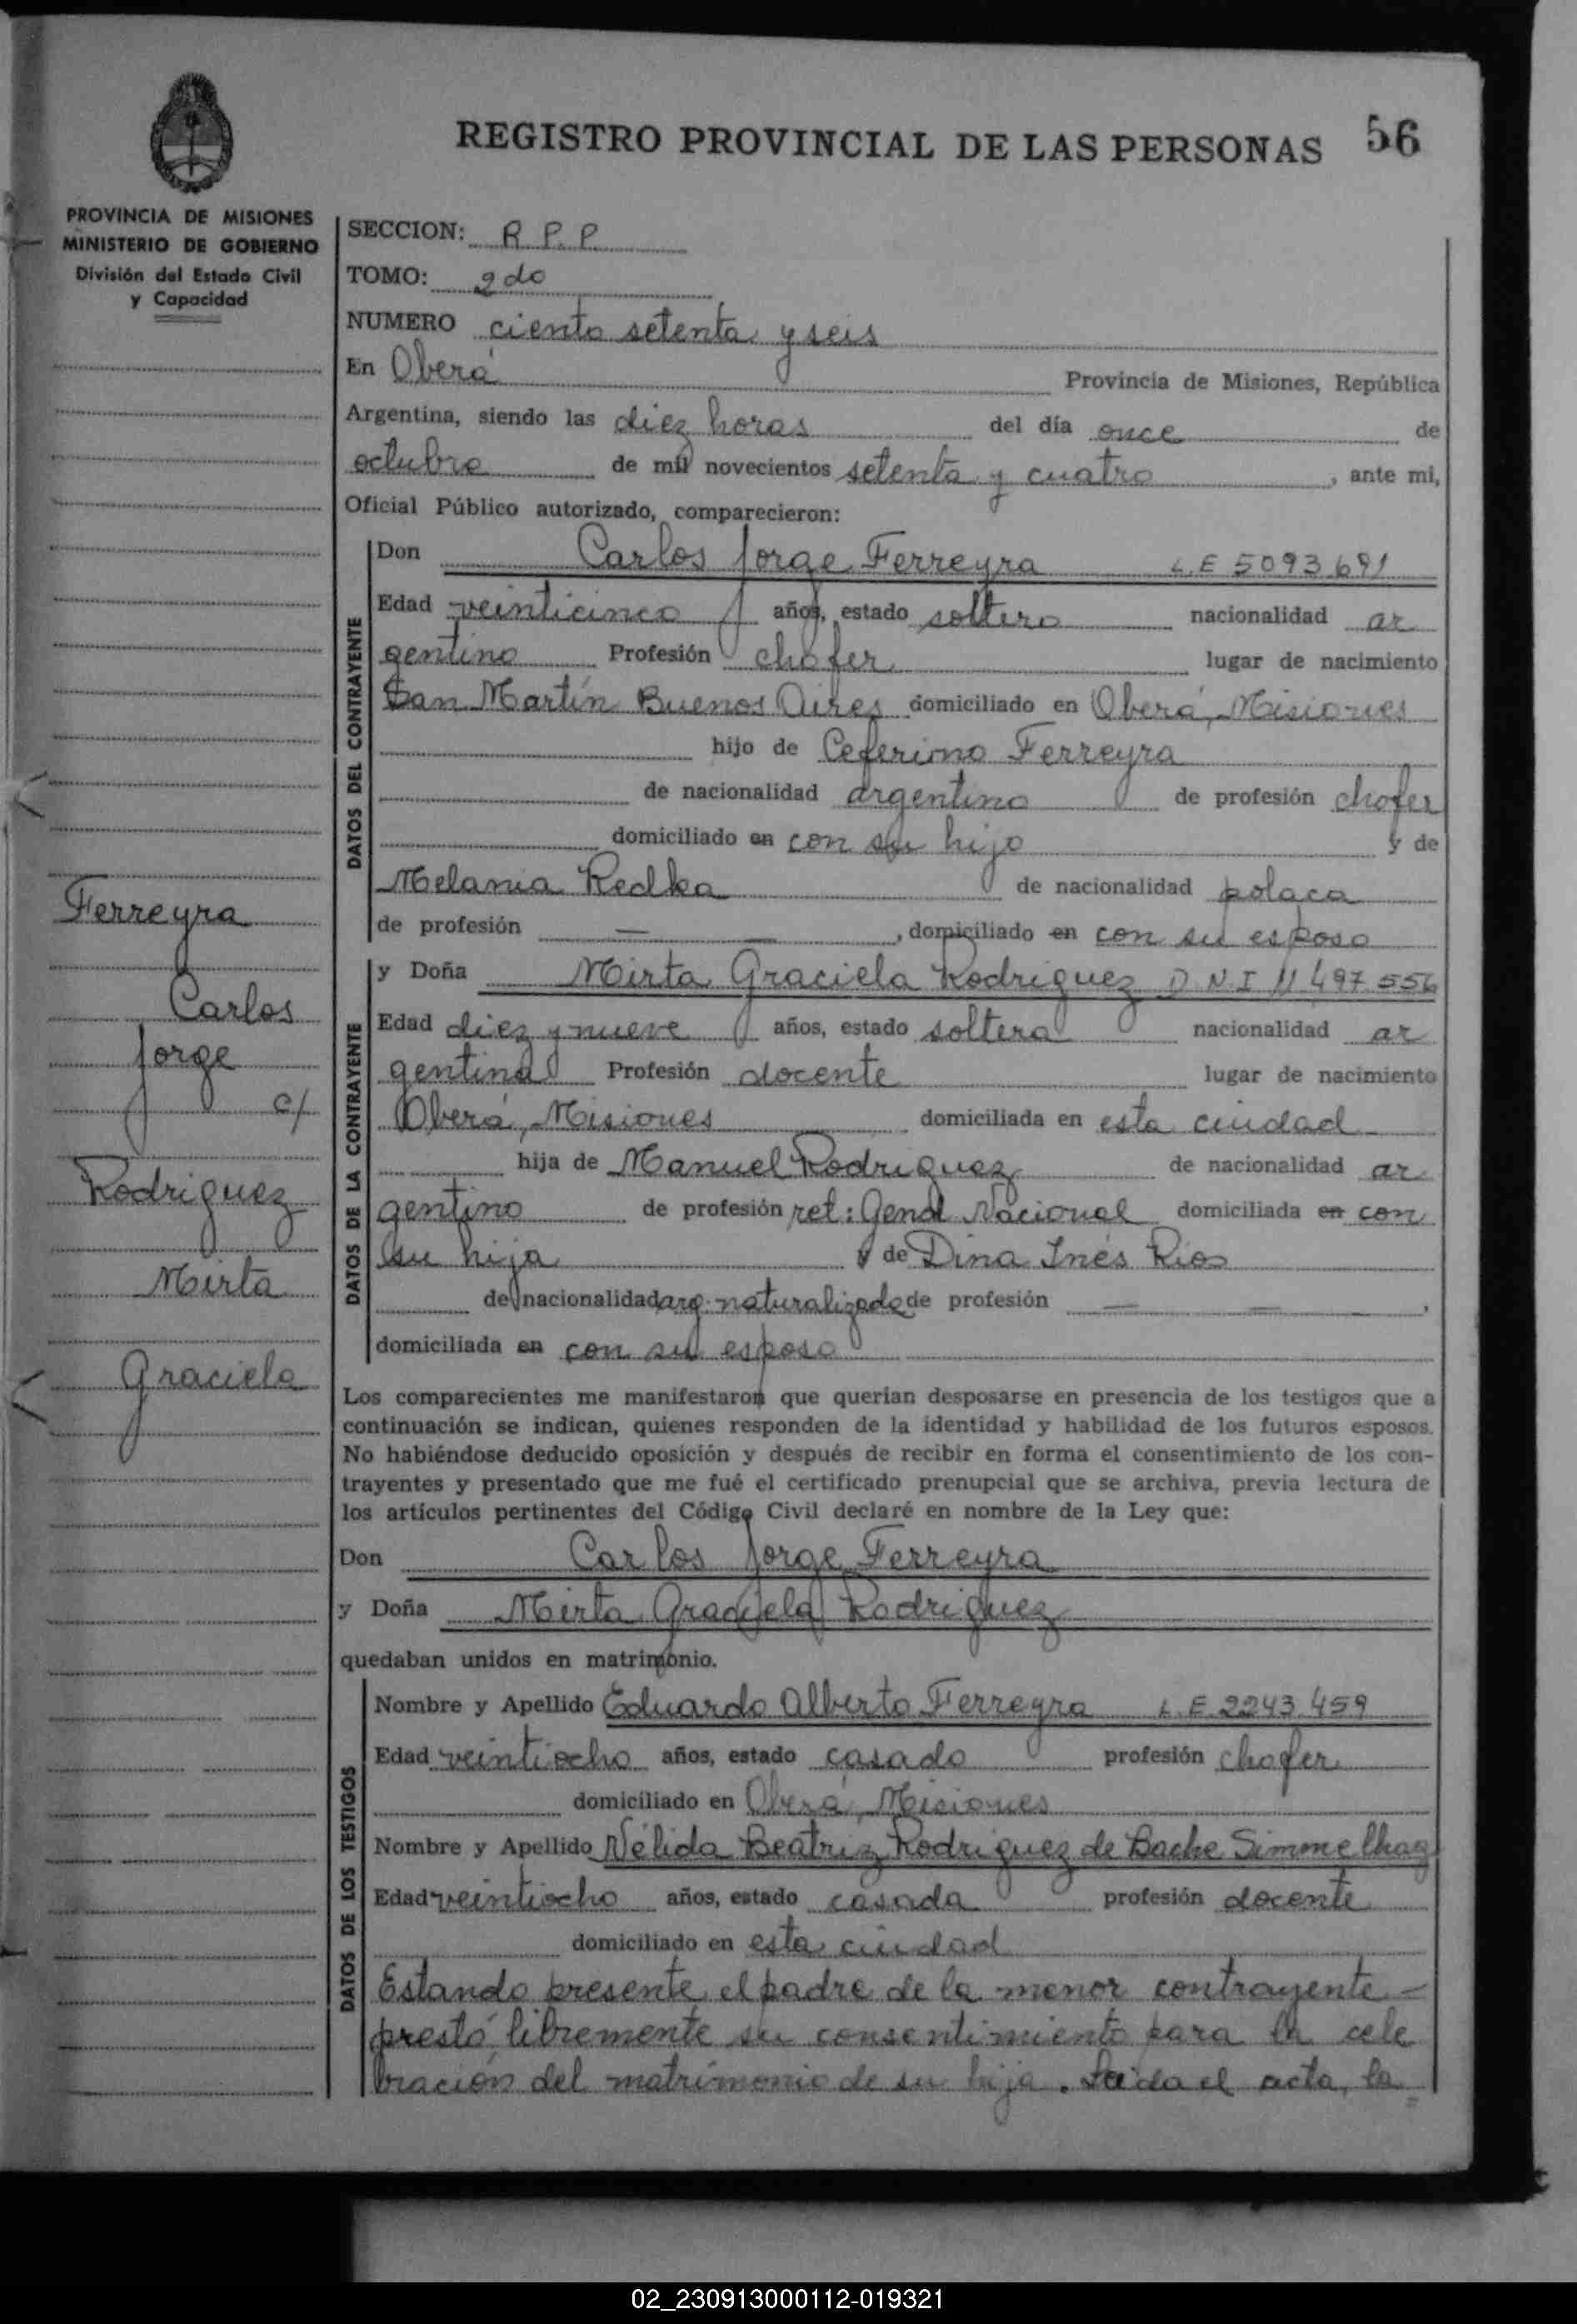 REGISTRO PROVINCIAL DE LAS PERSONAS 56
PROVINCIA DE MISIONES
MINISTERIO DE GOBIERNO
División del Estado Civil
y Capacidad
SECCION: R P. P.
TOMO: 2do
NUMERO ciento setenta y seis
En Oberá Provincia de Misiones, República
Argentina, siendo las diez horas del día once de
octubre de mil novecientos setenta y cuatro, ante mi,
Oficial Público autorizado, comparecieron:
DATOS DEL CONTRAYENTE
Don Carlos Jorge Ferreyra L E 5093691
Edad veinticinco años, estado soltero nacionalidad ar
gentino Profesión chofer lugar de nacimiento
San Martín Buenos Aires domiciliado en Oberá, Misiones
hijo de Ceferino Ferreyra
de nacionalidad argentino de profesión chofer
domiciliado en con su hijo y de
Melania Redka de nacionalidad polaca
de profesión — —, domiciliado en con su esposo
DATOS DE LA CONTRAYENTE
y Doña Mirta Graciela Rodriguez D. N. I 11 497 556
Edad diez y nueve años, estado soltera nacionalidad ar
gentina Profesión docente lugar de nacimiento
Oberá, Misiones domiciliada en esta ciudad
hija de Manuel Rodriguez de nacionalidad ar
gentino de profesión ret: Gend Nacional domiciliada en con
su hija y de Dina Inés Rios
de nacionalidad arg. naturalizada de profesión — —,
domiciliada en con su esposo
Ferreyra
Carlos
Jorge
c/
Rodriguez
Mirta
Graciela
Los comparecientes me manifestaron que querían desposarse en presencia de los testigos que a
continuación se indican, quienes responden de la identidad y habilidad de los futuros esposos.
No habiéndose deducido oposición y después de recibir en forma el consentimiento de los con-
trayentes y presentado que me fué el certificado prenupcial que se archiva, previa lectura de
los artículos pertinentes del Código Civil declaré en nombre de la Ley que:
Don Carlos Jorge Ferreyra
y Doña Mirta Graciela Rodriguez
quedaban unidos en matrimonio.
DATOS DE LOS TESTIGOS
Nombre y Apellido Eduardo Alberto Ferreyra L. E. 2243.459
Edad veintiocho años, estado casado profesión chofer
domiciliado en Oberá, Misiones
Nombre y Apellido Nélida Beatriz Rodriguez de Bache
Edad veintiocho años, estado casada profesión docente
domiciliado en esta ciudad
Estando presente el padre de la menor contrayente -
prestó libremente su consentimiento para la cele
bración del matrimonio de su hija. Leida el acta, la
02_230913000112-019321